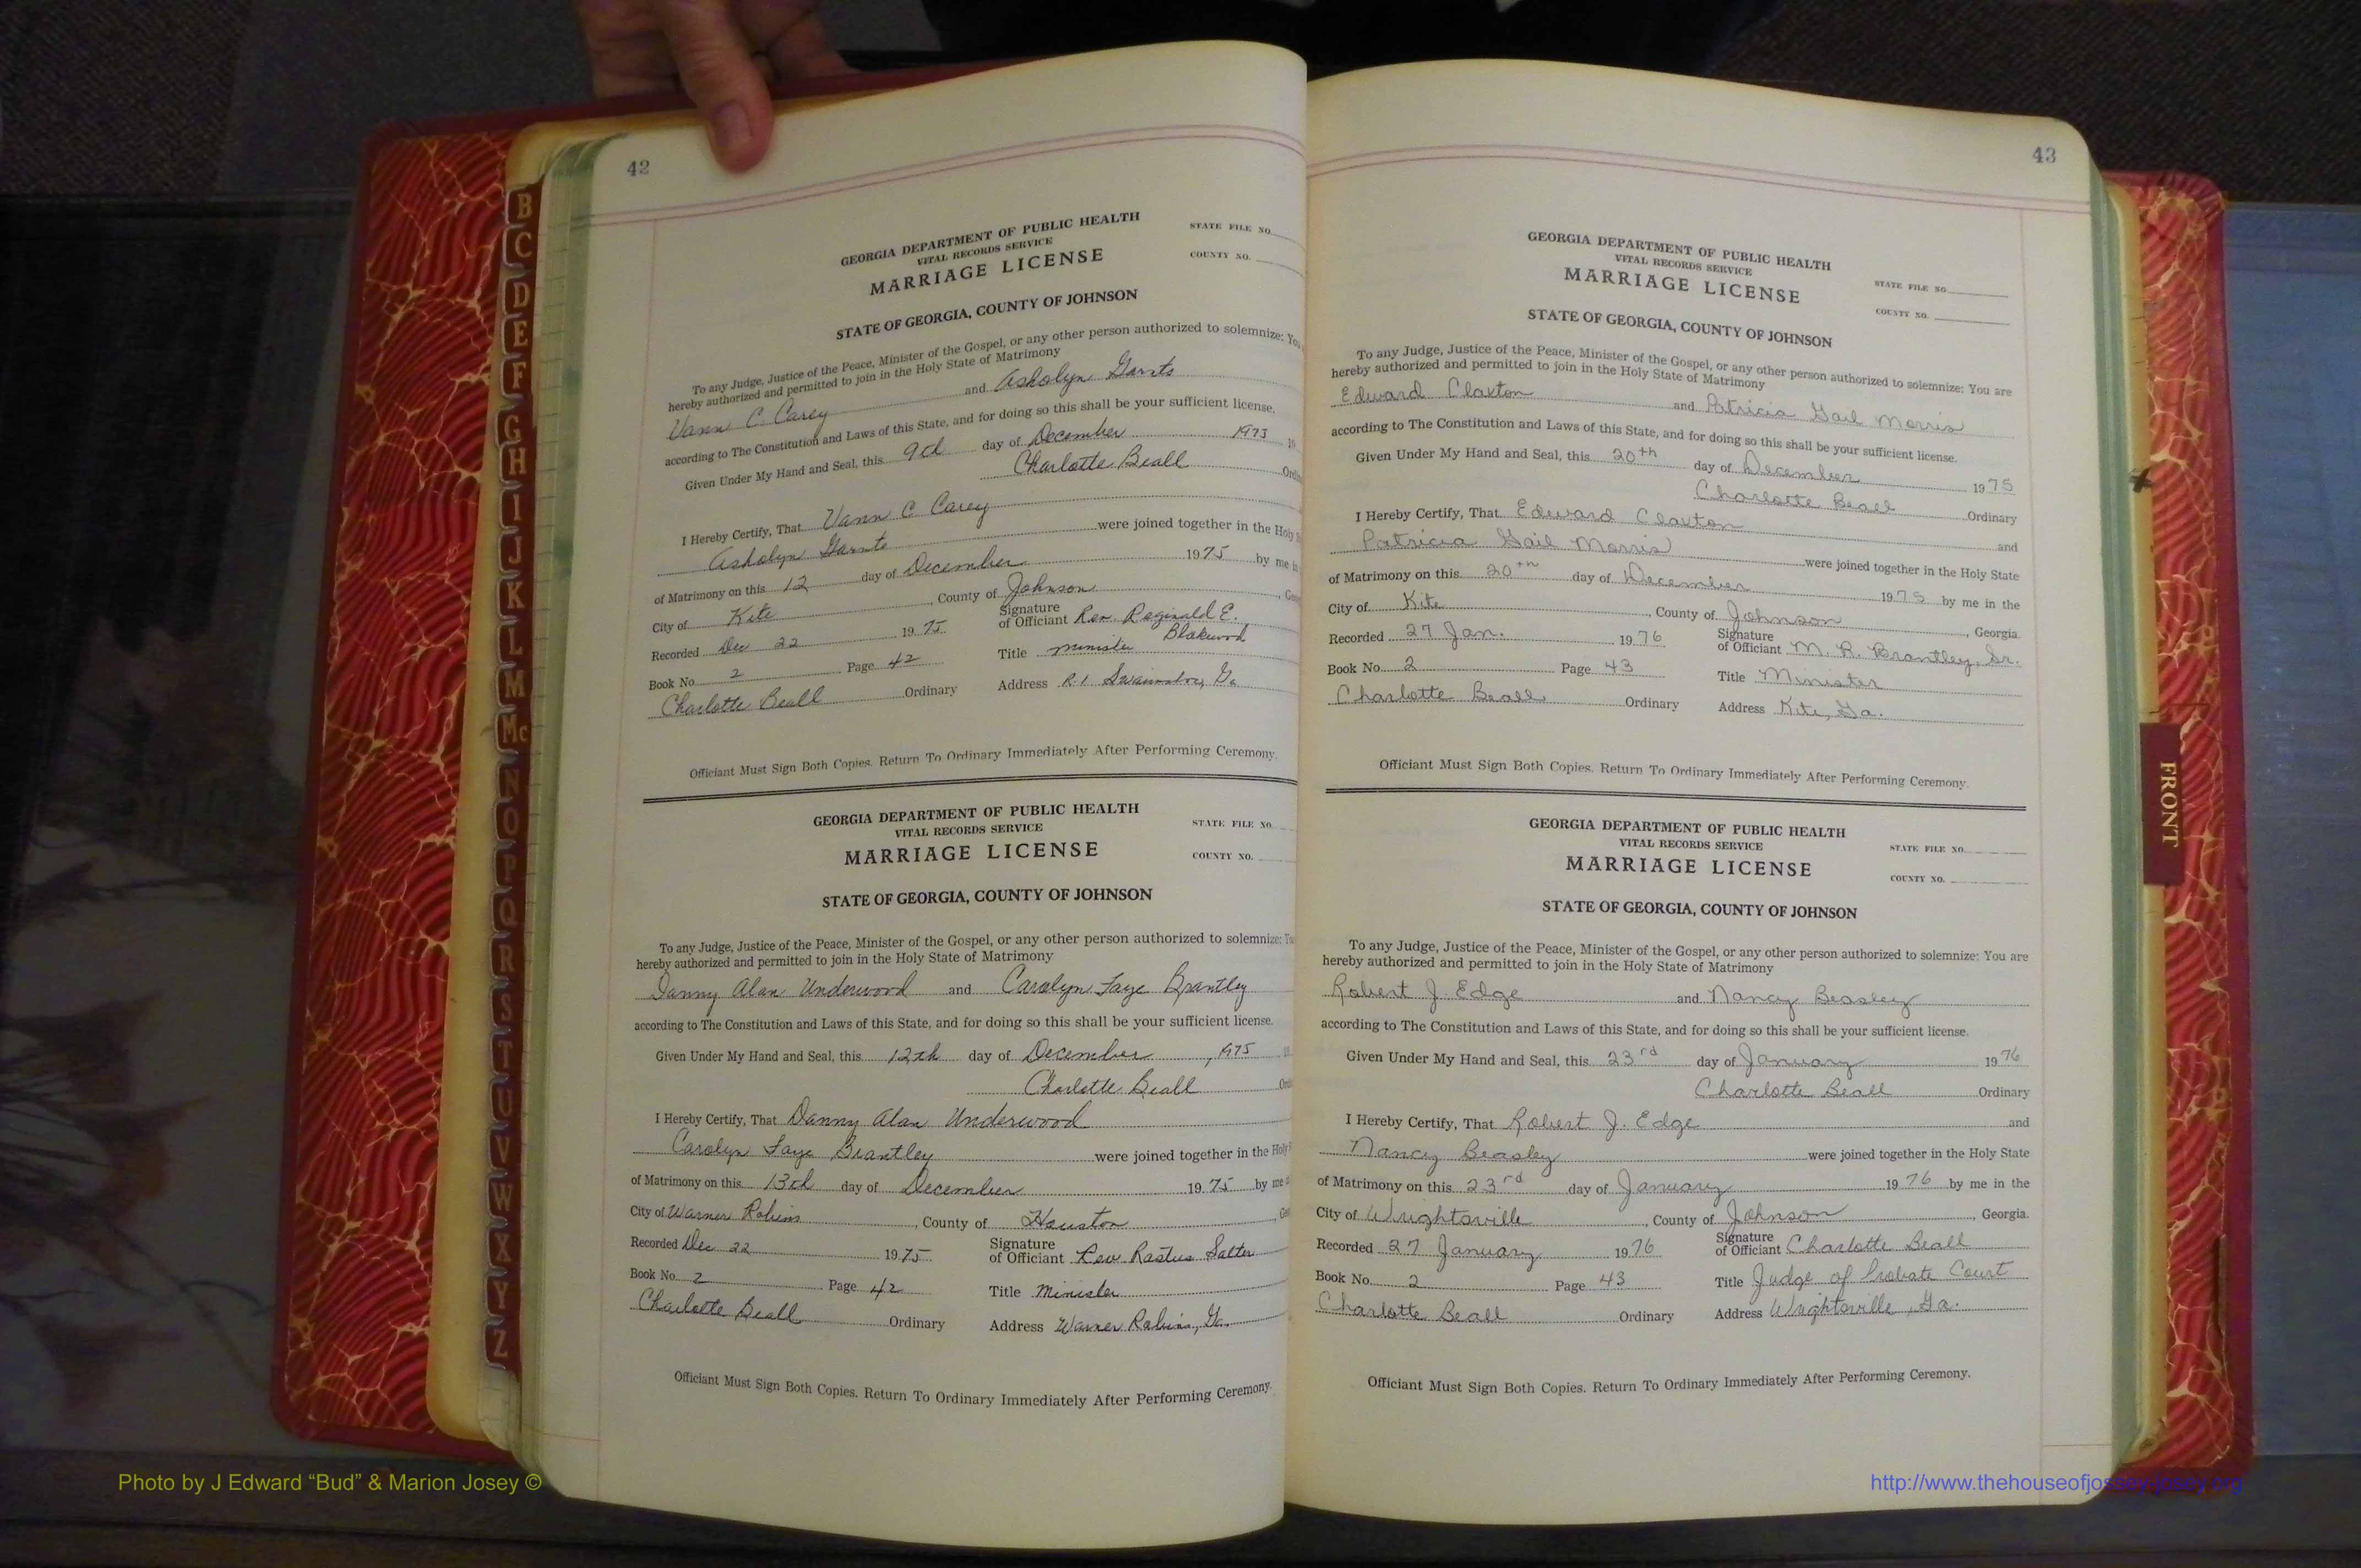 42
GEORGIA DEPARTMENT OF PUBLIC HEALTH
VITAL RECORDS SERVICE
MARRIAGE LICENSE
STATE FILE NO.
COUNTY NO.
STATE OF GEORGIA, COUNTY OF JOHNSON
To any Judge, Justice of the Peace, Minister of the Gospel, or any other person authorized to solemnize: You
hereby authorized and permitted to join in the Holy State of Matrimony
Vann C. Carey and Asholyn
according to The Constitution and Laws of this State, and for doing so this shall be your sufficient license.
Given Under My Hand and Seal, this 9th day of December 1975
Charlotte Beall
I Hereby Certify, That Vann C Carey
Asholyn were joined together in the Holy
of Matrimony on this 12 day of December 1975 by me
City of Kite, County of Johnson
Recorded Dec 22 1975 Signature of Officiant Rev. Reginald E. Blakewood
Book No. 2 Page 42 Title minister
Charlotte Beall Ordinary Address R.1 Swainsboro, Ga
Officiant Must Sign Both Copies. Return To Ordinary Immediately After Performing Ceremony.
GEORGIA DEPARTMENT OF PUBLIC HEALTH
VITAL RECORDS SERVICE
MARRIAGE LICENSE
STATE FILE NO.
COUNTY NO.
STATE OF GEORGIA, COUNTY OF JOHNSON
To any Judge, Justice of the Peace, Minister of the Gospel, or any other person authorized to solemnize:
hereby authorized and permitted to join in the Holy State of Matrimony
Danny Alan Underwood and Carolyn Faye Brantley
according to The Constitution and Laws of this State, and for doing so this shall be your sufficient license.
Given Under My Hand and Seal, this 12th day of December, 1975
Charlotte Beall
I Hereby Certify, That Danny Alan Underwood
Carolyn Faye Brantley were joined together in the Holy
of Matrimony on this 13th day of December 1975 by me
City of Warner Robins, County of Houston
Recorded Dec 22 1975 Signature of Officiant Rev Rastus Salter
Book No. 2 Page 42 Title Minister
Charlotte Beall Ordinary Address Warner Robins, Ga.
Officiant Must Sign Both Copies. Return To Ordinary Immediately After Performing Ceremony.
43
GEORGIA DEPARTMENT OF PUBLIC HEALTH
VITAL RECORDS SERVICE
MARRIAGE LICENSE
STATE FILE NO.
COUNTY NO.
STATE OF GEORGIA, COUNTY OF JOHNSON
To any Judge, Justice of the Peace, Minister of the Gospel, or any other person authorized to solemnize: You are
hereby authorized and permitted to join in the Holy State of Matrimony
Edward Claxton and Patricia Gail Morris
according to The Constitution and Laws of this State, and for doing so this shall be your sufficient license.
Given Under My Hand and Seal, this 20th day of December 1975
Charlotte Beall Ordinary
I Hereby Certify, That Edward Claxton and
Patricia Gail Morris were joined together in the Holy State
of Matrimony on this 20th day of December 1975 by me in the
City of Kite, County of Johnson, Georgia.
Recorded 27 Jan. 1976 Signature of Officiant M. R. Brantley, Sr.
Book No. 2 Page 43 Title Minister
Charlotte Beall Ordinary Address Kite, Ga.
Officiant Must Sign Both Copies. Return To Ordinary Immediately After Performing Ceremony.
GEORGIA DEPARTMENT OF PUBLIC HEALTH
VITAL RECORDS SERVICE
MARRIAGE LICENSE
STATE FILE NO.
COUNTY NO.
STATE OF GEORGIA, COUNTY OF JOHNSON
To any Judge, Justice of the Peace, Minister of the Gospel, or any other person authorized to solemnize: You are
hereby authorized and permitted to join in the Holy State of Matrimony
Robert J. Edge and Nancy Beasley
according to The Constitution and Laws of this State, and for doing so this shall be your sufficient license.
Given Under My Hand and Seal, this 23rd day of January 1976
Charlotte Beall Ordinary
I Hereby Certify, That Robert J. Edge and
Nancy Beasley were joined together in the Holy State
of Matrimony on this 23rd day of January 1976 by me in the
City of Wrightsville, County of Johnson, Georgia.
Recorded 27 January 1976 Signature of Officiant Charlotte Beall
Book No. 2 Page 43 Title Judge of Probate Court
Charlotte Beall Ordinary Address Wrightsville, Ga.
Officiant Must Sign Both Copies. Return To Ordinary Immediately After Performing Ceremony.
B
C
D
E
F
G
H
I
J
K
L
M
Mc
N
O
P
Q
R
S
T
U
V
W
X
Y
Z
FRONT
Photo by J Edward “Bud” & Marion Josey ©
http://www.thehouseofjossey-josey.org